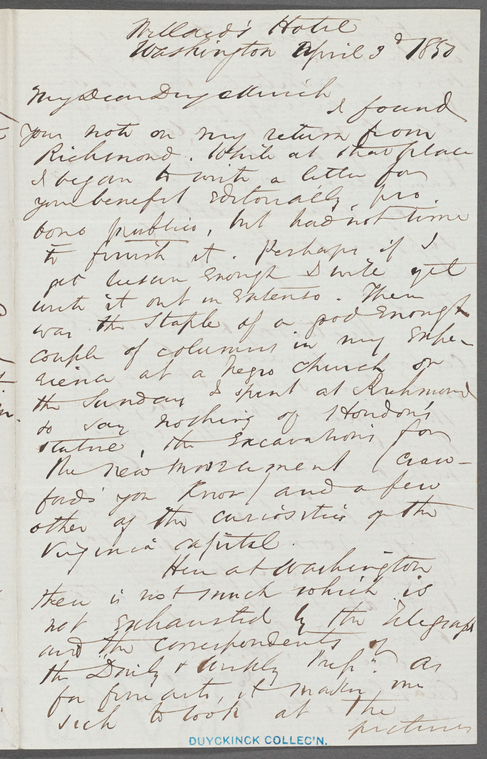 Willard's Hotel
Washington April 3d 1850
My Dear Duyckinck
I found
your note on my return from
Richmond. While at that place
I began to write a letter for
your benefit Editorially, pro
bono publico, but had not time
to finish it. Perhaps if I
get leisure Enough I will yet
write it out in Extenso. There
was the Staple of a good Enough
couple of columns in my Expe-
rience at a Negro Church on
the Sunday I spent at Richmond
to say nothing of Houdon's
statue, the Excavations for
the new monument (Craw-
ford's you know) and a few
other of the curiosities of the
Virginia capital.
Here at Washington
there is not much which is
not Exhausted by the Telegraph
and the correspondents of
the "Daily & Weekly Press". As
for fine arts, it makes me
sick to look at the
pictures
DUYCKINCK COLLEC'N.